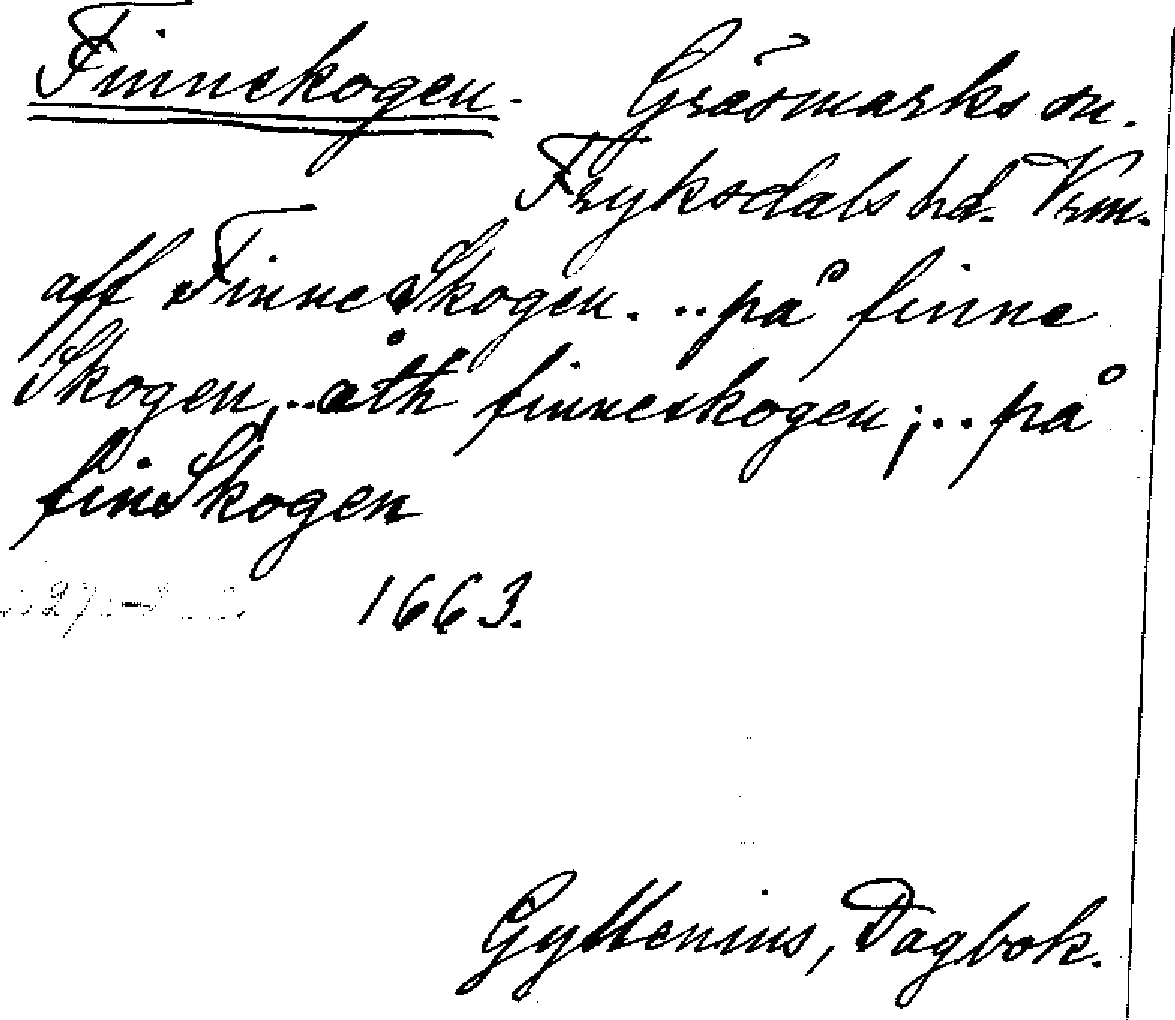 Finnskogen. Gräsmarks sn.
Fryksdals hd. Vrm.
aff FinneSkogen. .. på finne
Skogen, .. åth finneskogen; .. på
finSkogen
1663.
Gyllenius, Dagbok.